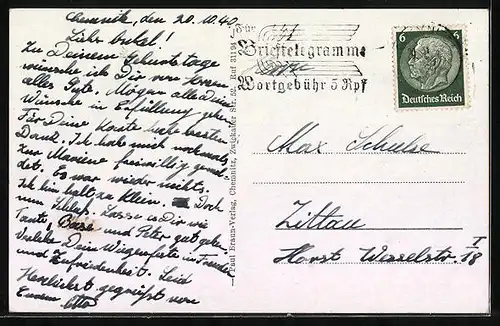 Chemnitz, den 20. III 40.
Lieber Onkel!
Zu Deinem Geburtstage
wünsche ich Dir von Herzen
alles Gute. Mögen alle Deine
Wünsche in Erfüllung gehen.
Für Deine Karte habe besten
Dank. Ich habe mich nochmals
zur Marine freiwillig gemel-
det. Es war wieder nichts.
Ich bin halt zu klein. Doch
nun Schluß. Lasse es Dir wie
Tante, und Peter gut gehen.
Verlebe Dein Wiegenfeste in Freude
und Zufriedenheit. Seid
Herzlichst gegrüßt von
Eurem Otto
Paul Braun-Verlag, Chemnitz, Zwickauer Str. 52. Ruf 31194
Für
Brieftelegramme
Wortgebühr 5 Rpf
6 6
Deutsches Reich
Max Schulze
Zittau
Horst Wesselstr. 18 I